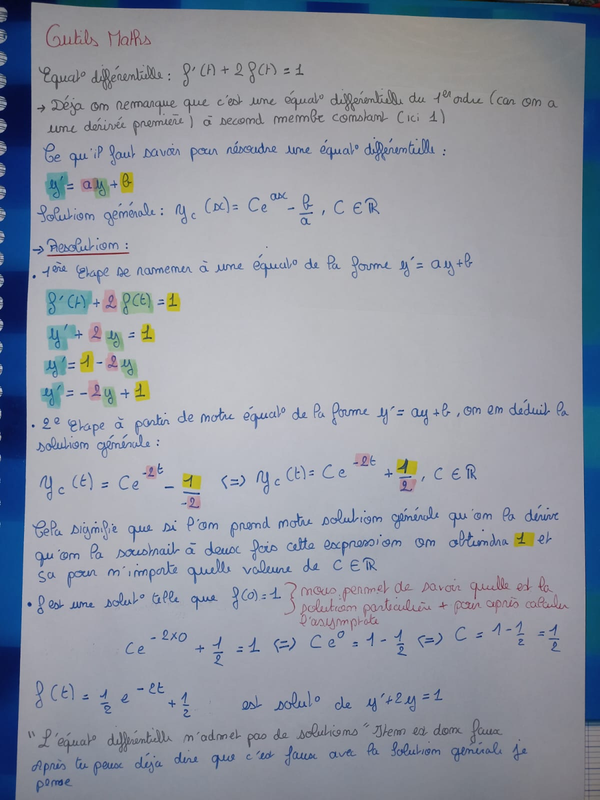 Outils Maths
Equat° différentielle : f'(t) + 2 f(t) = 1
→ Déja on remarque que c'est une équat° différentielle du 1er ordre (car on a
une dérivée première) à second membre constant (ici 1)
Ce qu'il faut savoir pour résoudre une équat° différentielle :
y' = ay + b
Solution générale : y_c (x) = Ce^{ax} - b/a , C ∈ ℝ
→ Résolution :
• 1ère Etape se ramener à une équat° de la forme y' = ay + b
f'(t) + 2 f(t) = 1
y' + 2 y = 1
y' = 1 - 2y
y' = - 2y + 1
• 2e Etape à partir de notre équat° de la forme y' = ay + b, on en déduit la
solution générale :
y_c (t) = Ce^{-2t} - 1/-2 <=> y_c (t) = Ce^{-2t} + 1/2 , C ∈ ℝ
Cela signifie que si l'on prend notre solution générale qu'on la dérive
qu'on la soustrait à deux fois cette expression on obtiendra 1 et
sa pour n'importe quelle valeure de C ∈ ℝ
• f est une solut° telle que f(0) = 1 } nous permet de savoir quelle est la
solution particulière + pour après calculer
l'asymptote
Ce^{-2×0} + 1/2 = 1 <=> Ce^0 = 1 - 1/2 <=> C = 1 - 1/2 = 1/2
f(t) = 1/2 e^{-2t} + 1/2 est solut° de y' + 2y = 1
"L'équat° différentielle n'admet pas de solutions" Item est donc faux
Après tu peux déja dire que c'est faux avec la solution générale je
pense